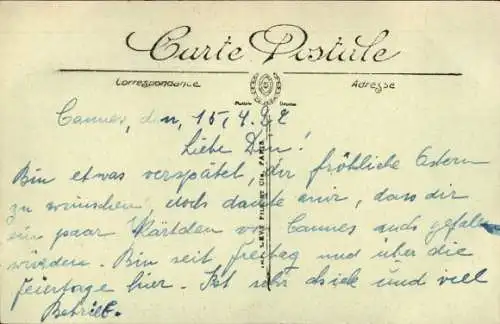 Carte Postale
Correspondance
Adresse
Cannes, den, 15.4.
Liebe !
Bin etwas verspätet, dir fröhliche Ostern
zu wünschen, doch dachte mir, dass dir
ein paar Kärtchen von Cannes auch gefallen
würden. Bin seit Freitag und über die
Feiertage hier. Ist sehr chick und viel
Betrieb.